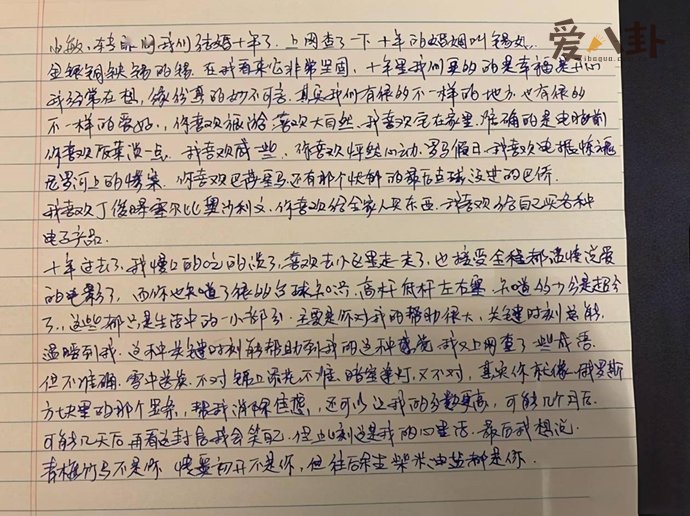 爱八卦
aibagua.com
小敏,转眼间我们结婚十年了,上网查了一下十年的婚姻叫锡婚.
金银铜铁锡的锡.在我看来它非常坚固,十年里我们更多的是幸福是开心
我经常在想,缘份真的妙不可言.其实我们有很多不一样的地方,也有很多
不一样的爱好.,你喜欢旅游喜欢大自然.我喜欢宅在家里.准确的是电脑前
你喜欢饭菜淡一点.我喜欢咸一些,你喜欢怦然心动.罗马假日.我喜欢电锯惊魂
尼罗河上的惨案.你喜欢巴萨皇马还有那个快的最后点球没进的巴乔
我喜欢丁俊晖塞尔比奥沙利文.你喜欢给全家人买东西.我喜欢给自己买各种
电子产品.
十年过去了.我慢慢的吃的淡了,喜欢去小区里走一走了,也接受全程都谈情说爱
的电影了,而你也知道了很多台球知识.高杆低杆左右塞.知道的少分是超分
了.,这些都只是生活中的一小部分.主要是你对我的帮助很大,关键时刻总能
温暖到我.这种关键时刻能帮助到我的这种感觉我又上网查了一些成语.
但不准确.雪中送炭.不对锦上添花不准.暗室逢灯,又不对,其实你就像俄罗斯
方块里的那个竖条,帮我消除住想,还可以让我的分数更高,可能几个月后.
可能几天后再看这封信我会笑自己.但此刻这是我的心里话.最后我想说.
青梅竹马不是你 情窦初开不是你,但往后余生柴米油盐都是你.